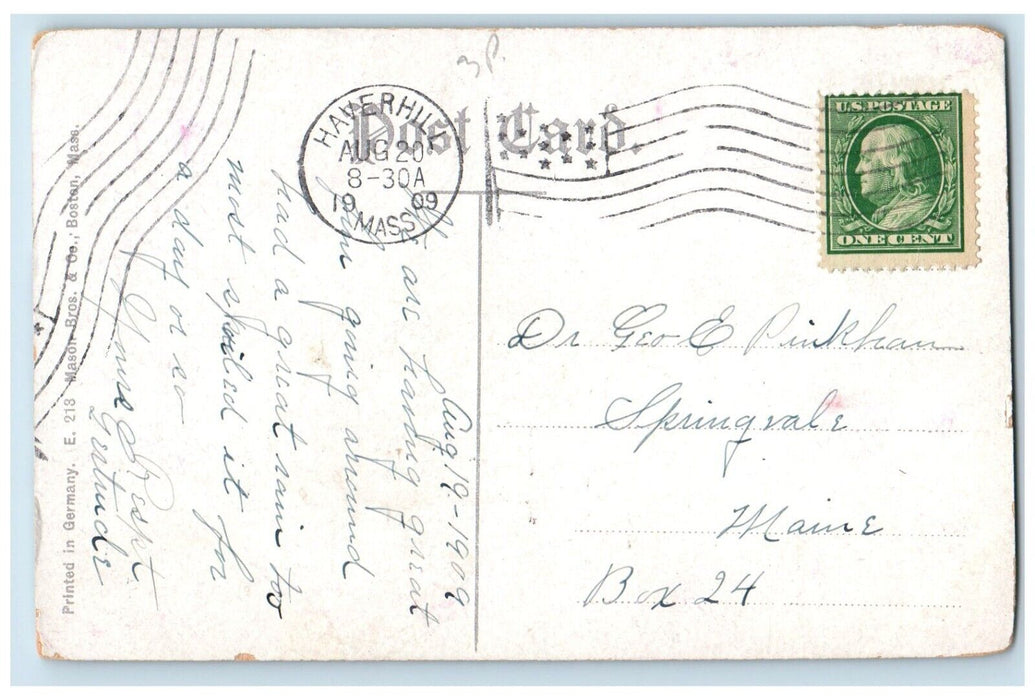 3 P.
Post Card.
HAVERHILL
AUG 20
8-30A
19 09
MASS.
U.S. POSTAGE
ONE CENT
Aug 19-1909
We are having great
fun going around
had a great rain too
most spoiled it for
a day or so
Yours Respt
Gertrude
Dr Geo E Pinkham
Springvale
Maine
Box 24
Printed in Germany. E. 218 Mason Bros. & Co., Boston, Mass.